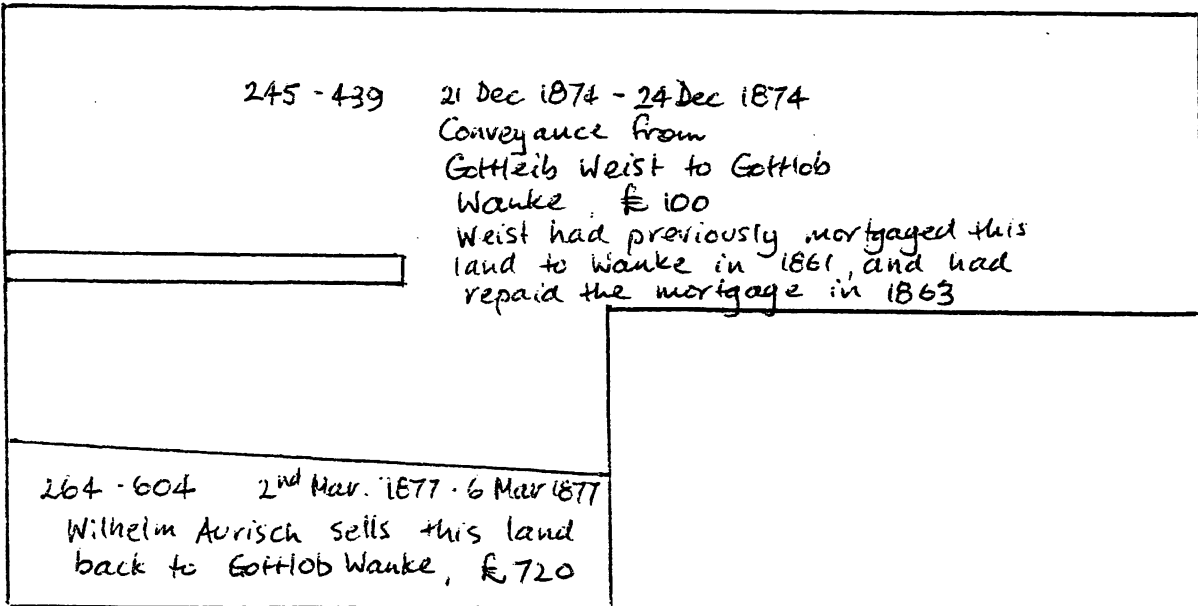 245 - 439 21 Dec 1874 - 24 Dec 1874
Conveyance from
Gottleib Weist to Gottlob
Wanke, £ 100
Weist had previously mortgaged this
land to Wanke in 1861, and had
repaid the mortgage in 1863
264 - 604 2nd Mar. 1877 - 6 Mar 1877
Wilhelm Aurisch sells this land
back to Gottlob Wanke, £ 720